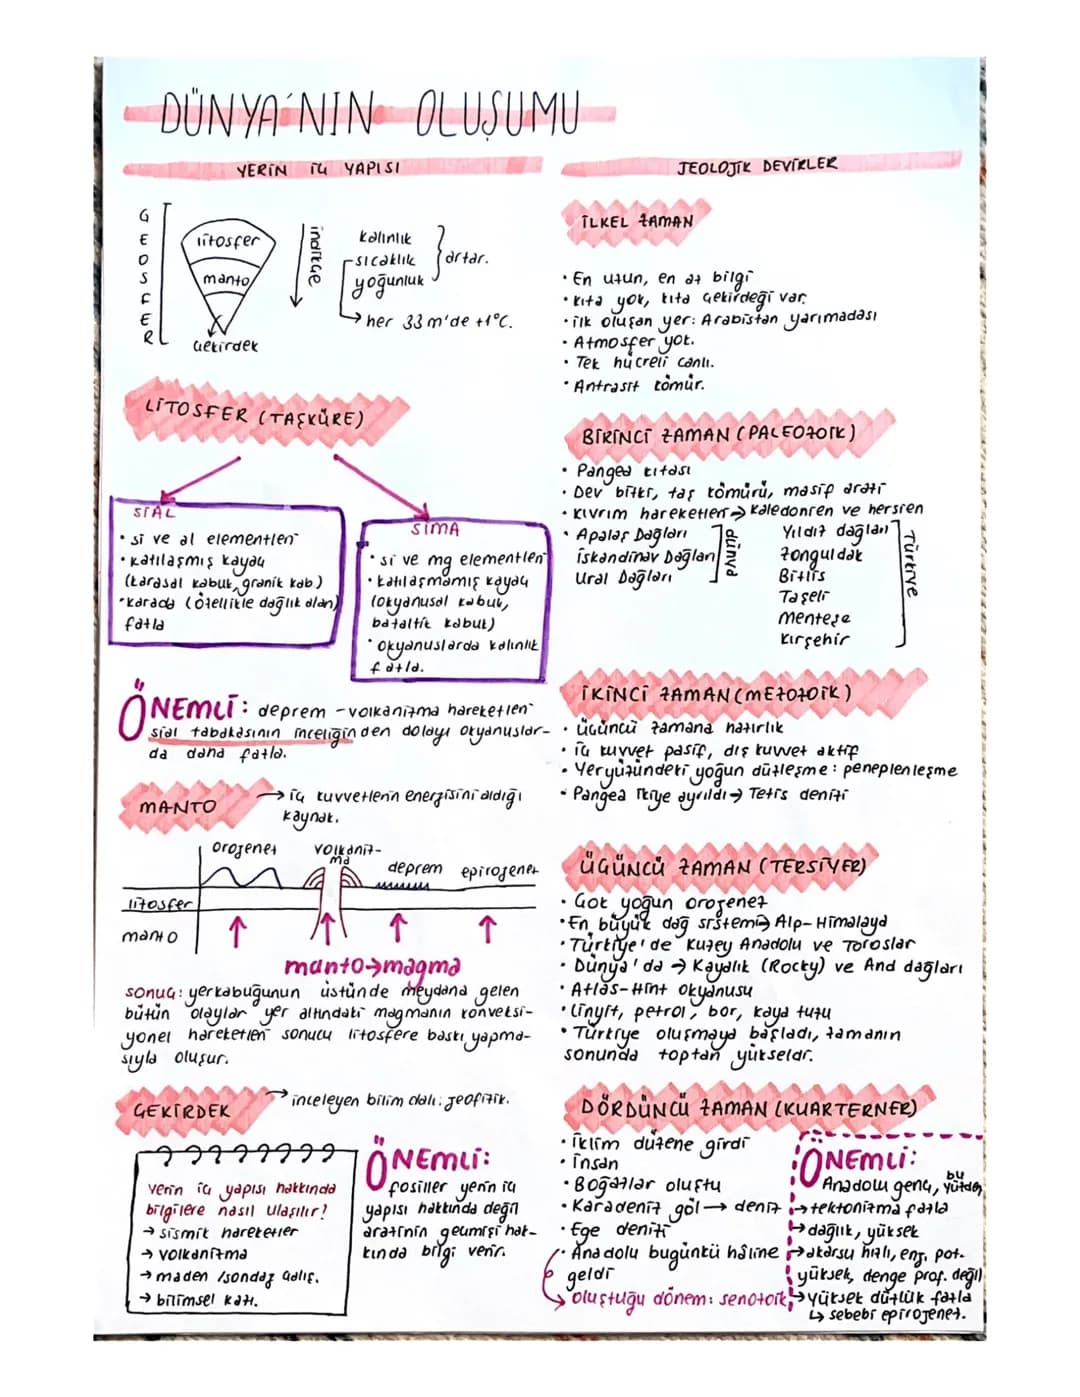 DÜNYA'NIN OLUŞUMU
YERİN İÇ YAPISI
GEOSFER
litosfer
manto
çekirdek
indikçe
kalınlık
sıcaklık
yoğunluk
artar.
her 33 m'de +1°C.
LİTOSFER (TAŞKÜRE)
SİAL
• si ve al elementleri
• katılaşmış kayaç
(karasal kabuk, granik kab.)
• karada (özellikle dağlık alan)
fazla
SİMA
• si ve mg elementleri
• katılaşmamış kayaç
(okyanusal kabuk,
bazaltik kabuk)
• okyanuslarda kalınlık
fazla.
ÖNEMLİ: deprem - volkanizma hareketleri
sial tabakasının inceliğinden dolayı okyanuslar-
da daha fazla.
MANTO
→ iç kuvvetlerin enerjisini aldığı
kaynak.
orojenez
volkaniz-
ma
deprem
epirojenez
litosfer
manto
manto→magma
sonuç: yerkabuğunun üstünde meydana gelen
bütün olaylar yer altındaki magmanın konveksi-
yonel hareketleri sonucu litosfere baskı yapma-
sıyla oluşur.
ÇEKİRDEK
→ inceleyen bilim dalı: jeofizik.
yerin iç yapısı hakkında
bilgilere nasıl ulaşılır?
→ sismik hareketler
→ volkanizma
→ maden /sondaj çalış.
→ bilimsel kazı.
ÖNEMLİ:
fosiller yerin iç
yapısı hakkında değil
arazinin geçmişi hak-
kında bilgi verir.
JEOLOJİK DEVİRLER
İLKEL ZAMAN
• En uzun, en az bilgi
• kıta yok, kıta çekirdeği var.
• ilk oluşan yer: Arabistan yarımadası
• Atmosfer yok.
• Tek hücreli canlı.
• Antrasit kömür.
BİRİNCİ ZAMAN (PALEOZOİK)
• Pangea kıtası
• Dev bitki, taş kömürü, masif arazi
• kıvrım hareketleri→ kaledonien ve hersien
• Apalaş Dağları
İskandinav Dağları
Ural Dağları
dünya
Yıldız dağları
Zonguldak
Bitlis
Taşeli
Menteşe
Kırşehir
Türkiye
İKİNCİ ZAMAN (MEZOZOİK)
• üçüncü zamana hazırlık
• iç kuvvet pasif, dış kuvvet aktif
• Yeryüzündeki yoğun düzleşme: peneplenleşme
• Pangea ikiye ayrıldı→ Tetis denizi
ÜÇÜNCÜ ZAMAN (TERSİYER)
• Çok yoğun orojenez
• En büyük dağ sistemi→ Alp-Himalaya
• Türkiye'de Kuzey Anadolu ve Toroslar
• Dünya'da → Kayalık (Rocky) ve And dağları
• Atlas-Hint okyanusu
• Linyit, petrol, bor, kaya tuzu
• Türkiye oluşmaya başladı, zamanın
sonunda toptan yükseldi.
DÖRDÜNCÜ ZAMAN (KUARTERNER)
• İklim düzene girdi
• İnsan
• Boğazlar oluştu
• Karadeniz göl → deniz
• Ege denizi
• Anadolu bugünkü hâline
geldi
→ oluştuğu dönem: senozoik
ÖNEMLİ:
Anadolu genç, bu yüzden
→ tektonizma fazla
→ dağlık, yüksek
→ akarsu hızlı, enj. pot.
yüksek, denge prof. değil
→ Yüksek düzlük fazla
↳ sebebi epirojenez.